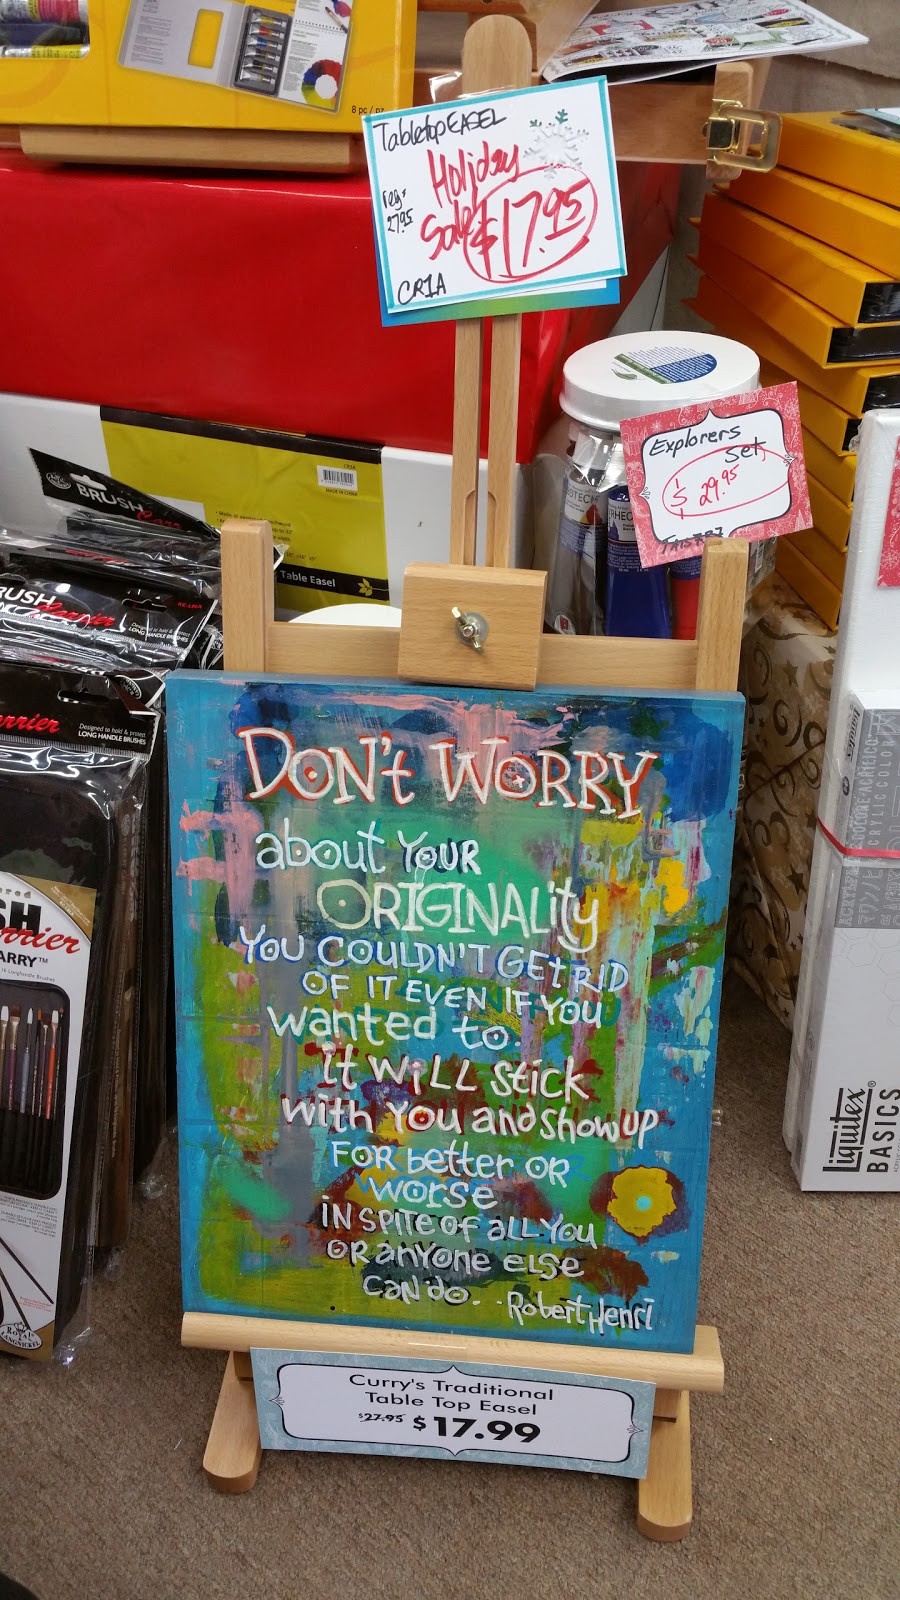 8 pc / pz
Tabletop EASEL
Holiday
Sale
reg.
27.95
$17.95
CR1A
Explorers
Set
$29.95
MADE IN CHINA
Table Easel
BRUSH
BRUSH
Carrier
Designed to hold & protect
LONG HANDLE BRUSHES
Designed to hold & protect
LONG HANDLE BRUSHES
ROYAL
LANGNICKEL
DON't WORRY
about YOUR
ORIGINALity
YOU COULDN'T GET RID
OF IT EVEN IF YOU
wanted to.
it WiLL stick
with YOU and show up
FOR better OR
worse
iN SPITE OF aLL YOU
OR aNYONE ELSE
can do. - Robert Henri
Curry's Traditional
Table Top Easel
$27.95 $17.99
Liquitex®
BASICS